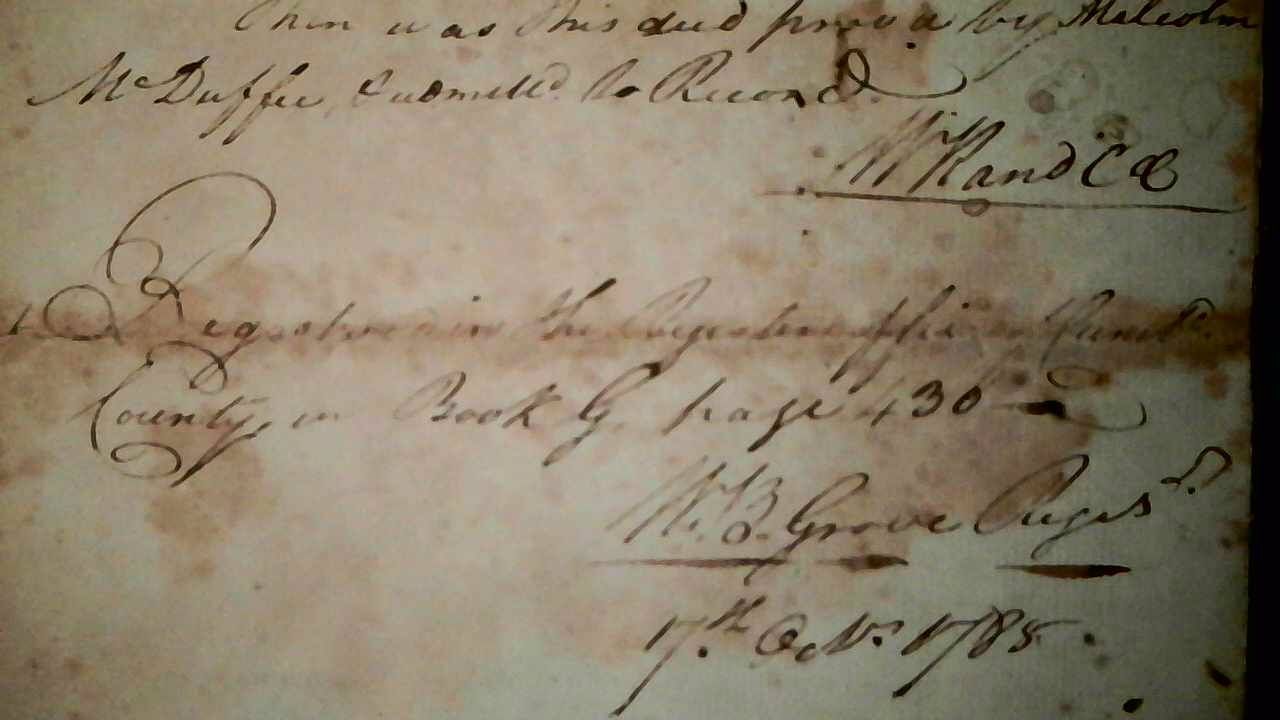 Then was this deed prov'd by Malcolm
McDuffee, & admitted to Record.
W Rand CC
Registered in the Registers office in Cumbd.
County, in Book G. page 430
W. B. Grove Regisr.
17.th Octr. 1785